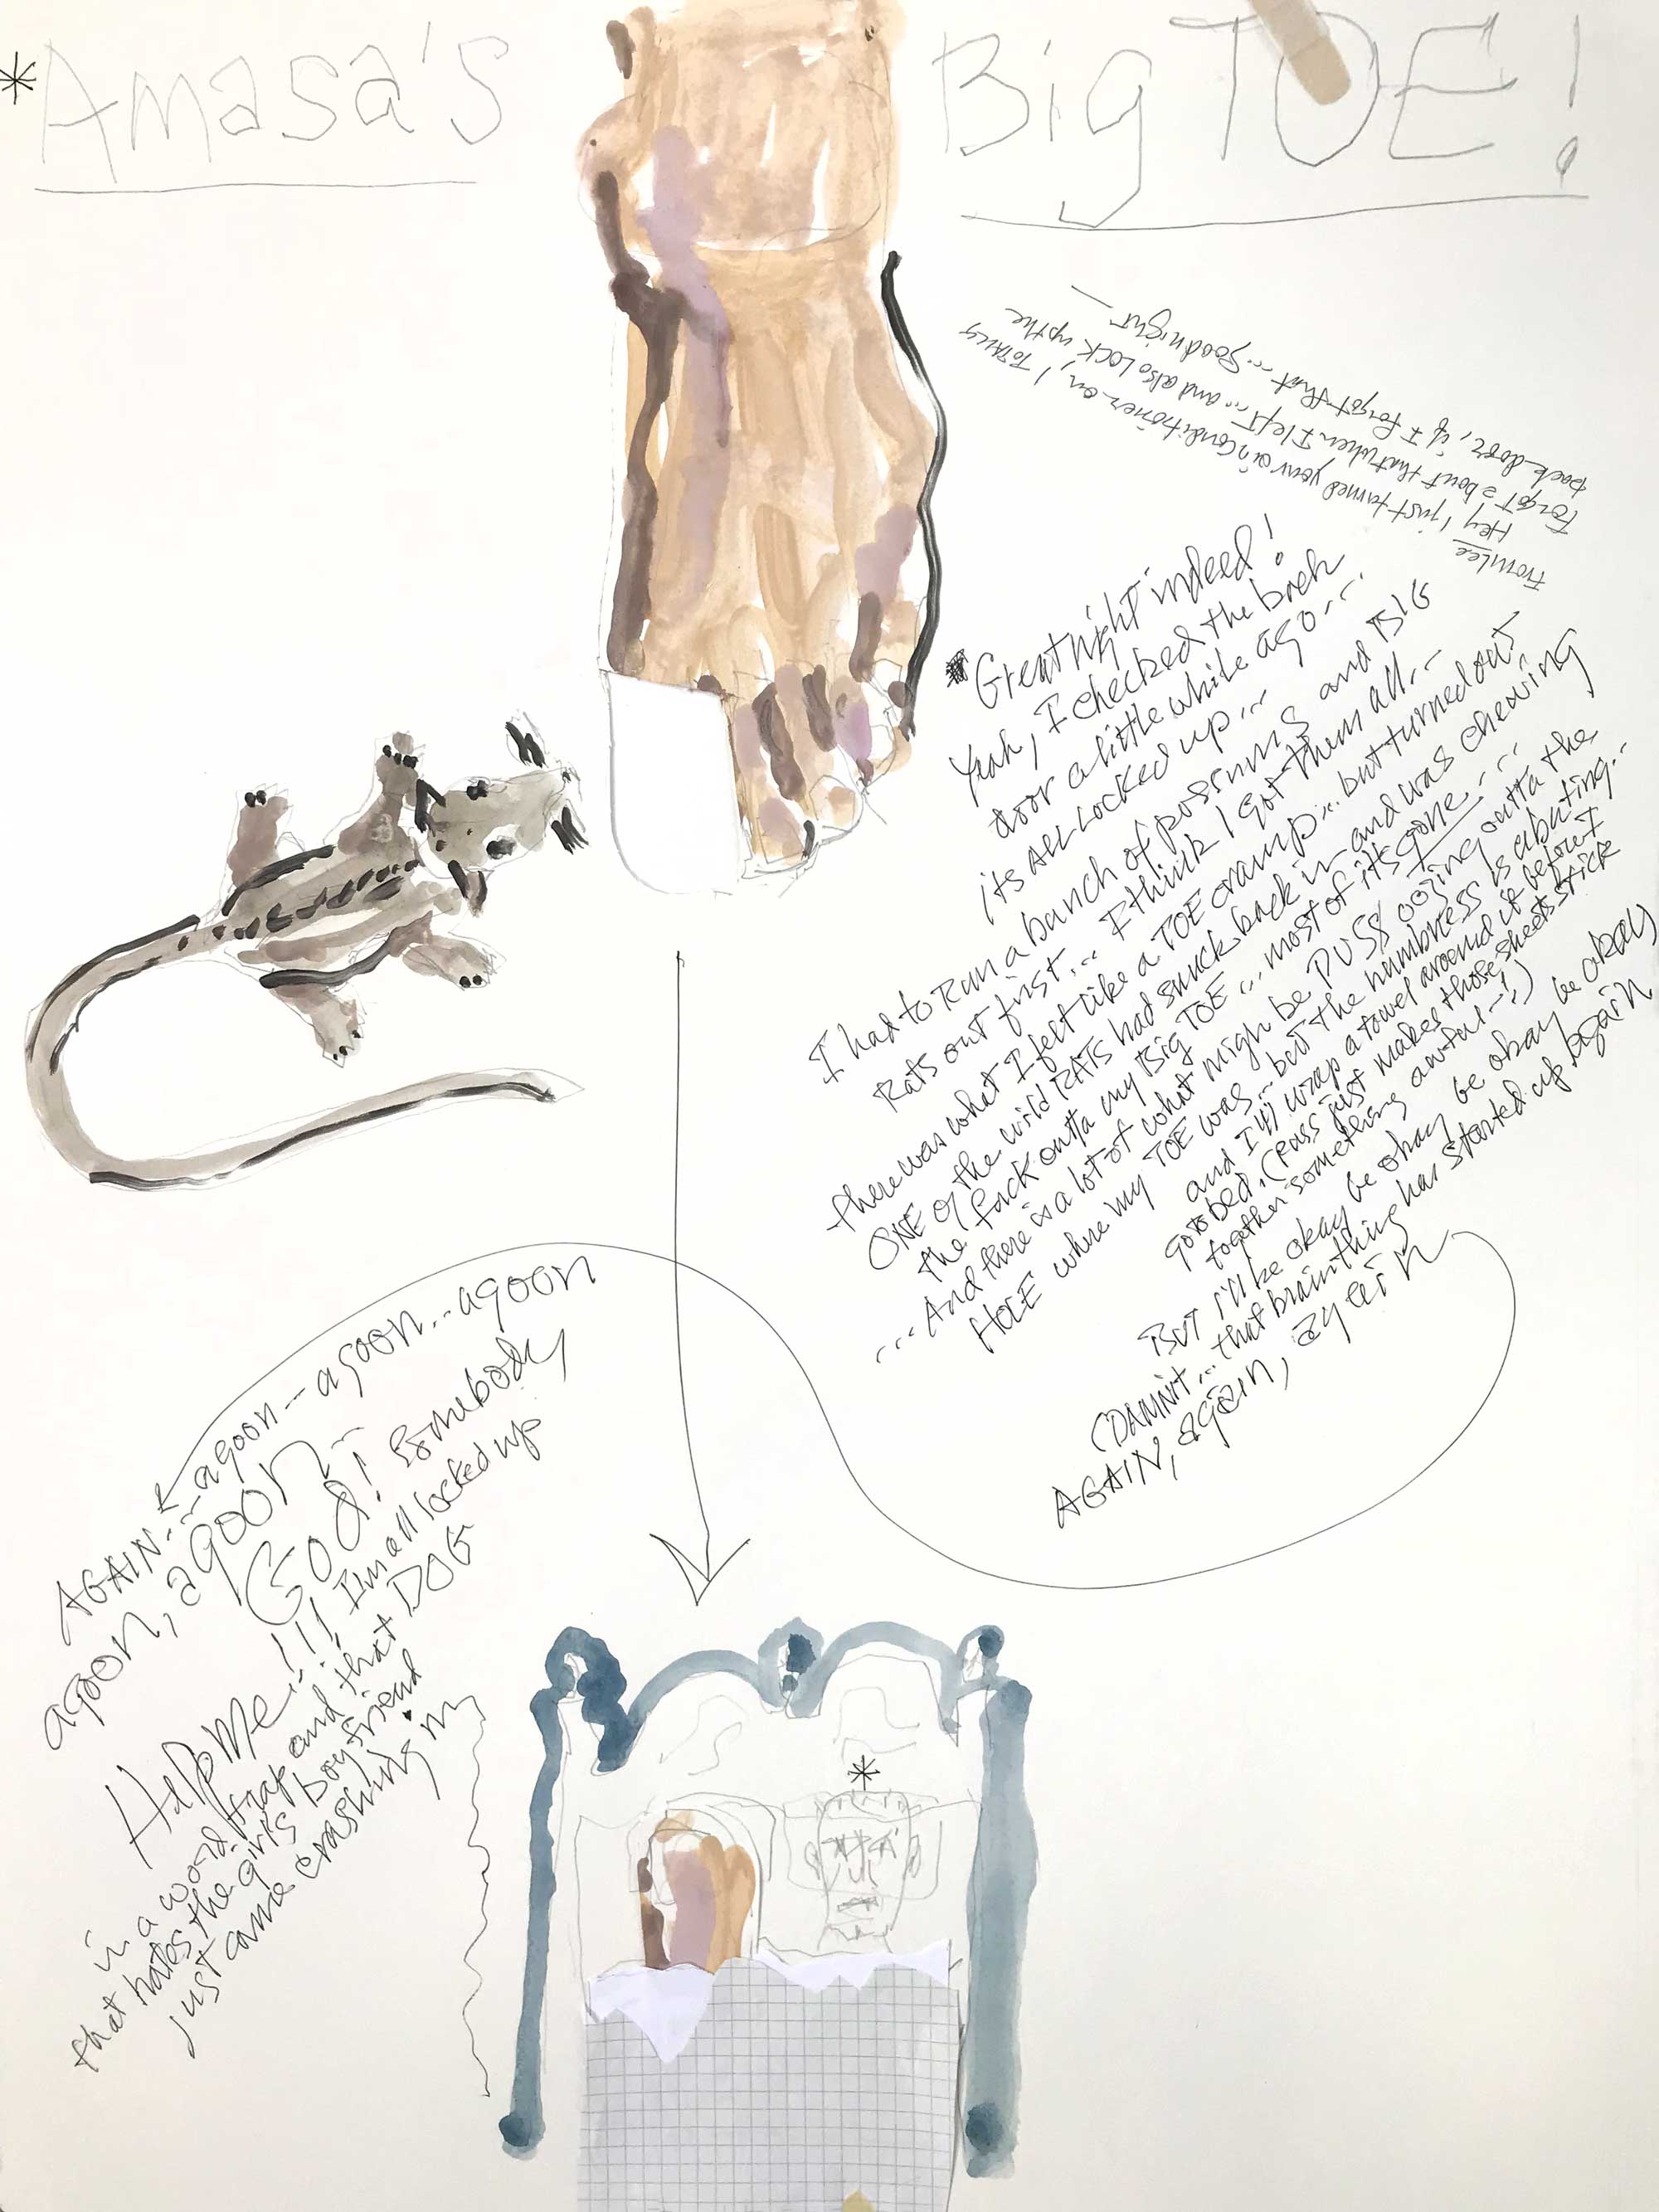 *Amasa's Big TOE!
From Lee
Hey I just turned your air conditioner on, I TOTALLY
Forgot about that when I left... and also LOCK up the
back door, if I forgot that... Good night —
*Great night indeed!
Yeah, I checked the back
door a little while ago...
its ALL LOCKED up...
I had to Run a bunch of possums and BIG
Rats out first... I think I got them all...
there was what I felt like a TOE cramp... but turned out
ONE of the wild RATS had snuck back in and was chewing
the fuck outta my Big TOE... most of its gone...
...And there is a lot of what migh be PUSS oozing outta the
HOLE where my TOE was... but the numbness is abating..
and I'll wrap a towel around it before I
go to bed. (Puss just makes those sheets stick
together something awful-!)
BUT I'll be okay be okay be okay be okay be okay
(DAMNit... that brain thing has started up again
AGAIN, again, again
AGAIN...agoon...agoon...agoon
agoon, agoon...
GOd! Somebody
Help me!!! I'm all locked up
that in a word trap and that DOG
hates the girls boyfriend
just came crashing in
*